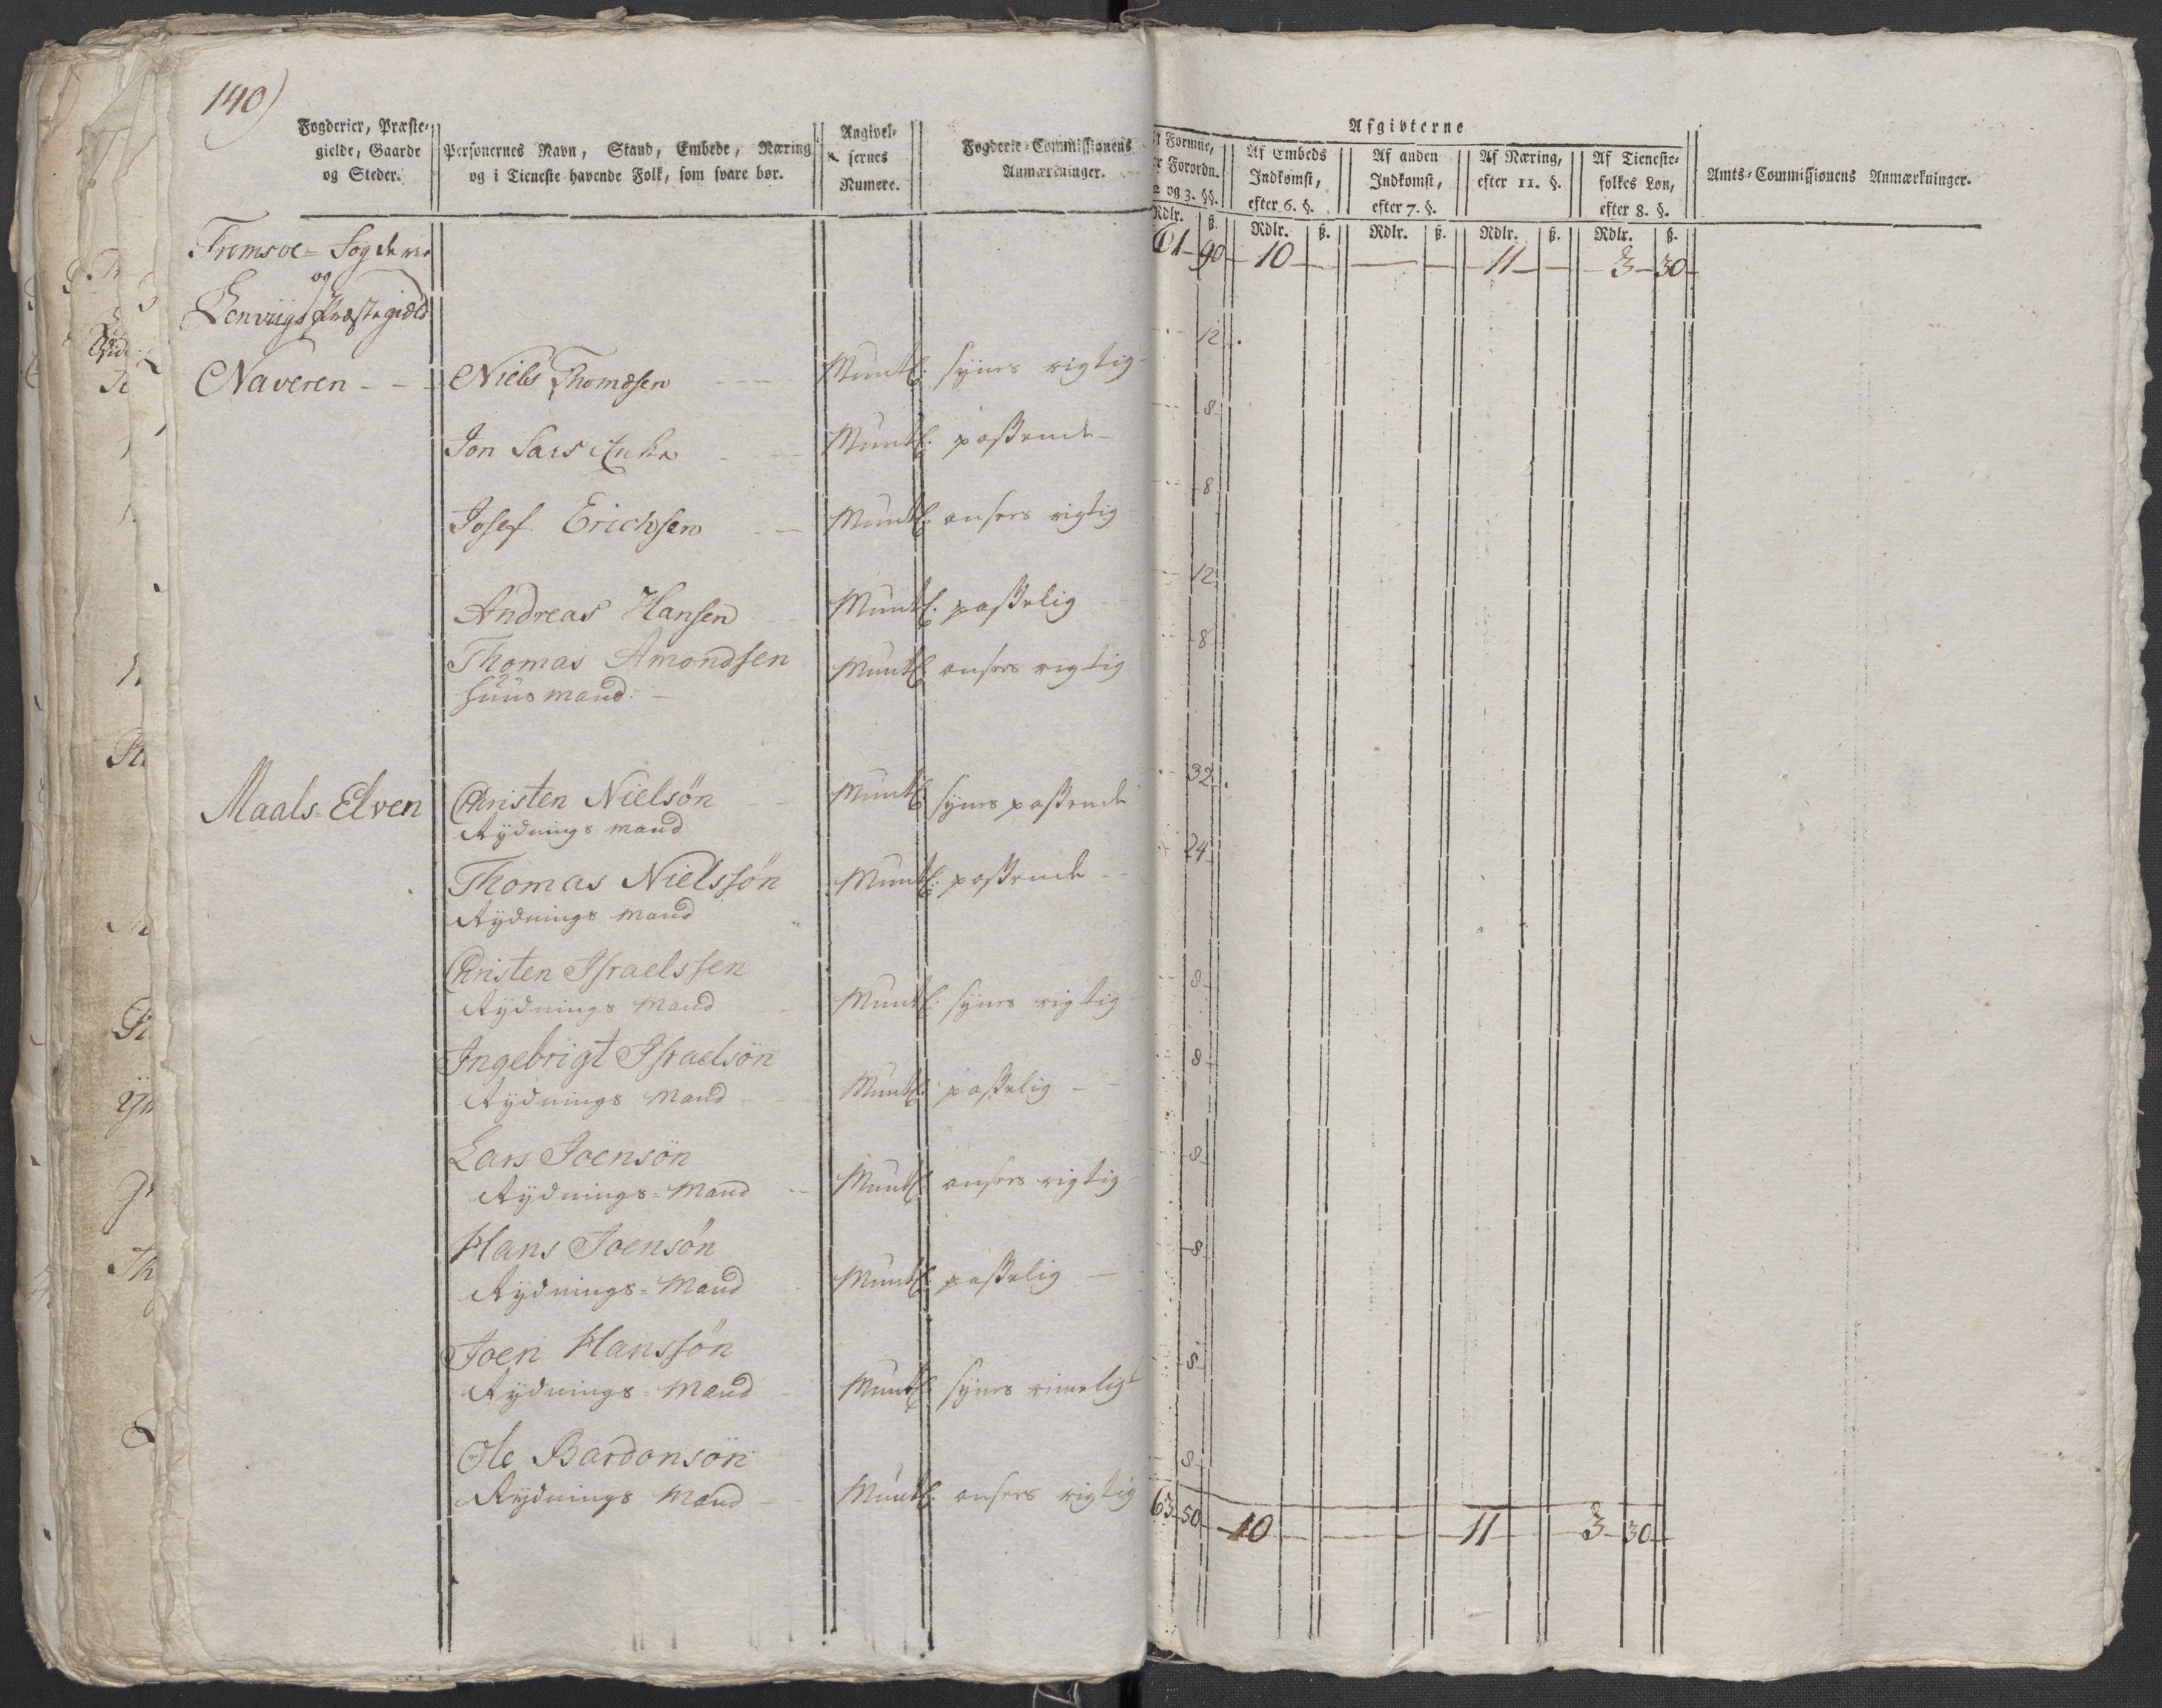 140)
Fogderier, Præste-
gielde, Gaarde
og Steder.
Personernes Navn, Stand, Embede, Næring
og i Tieneste havende Folk, som svare bør.
Angivel-
sernes
Numere.
Fogderie-Commissionens
Anmærkninger.
Afgivterne
Formue,
Forordn.
og 3. §§.
Af Embeds
Indkomst,
efter 6. §.
Af anden
Indkomst,
efter 7. §.
Af Næring,
efter 11. §.
Af Tieneste-
folkes Løn,
efter 8. §.
Amts-Commissionens Anmærkninger.
Rdlr. ß. Rdlr. ß. Rdlr. ß. Rdlr. ß. Rdlr. ß.
61 90 10 — — — 11 — 3 30
Tromsöe Fogderie
og
Lenviigs Præstegield
Naveren Niels Thomesen Muntl: synes rigtig 12
Jon Lars Muntl: passende 8
Josef Erichsen Muntl: ansees rigtig 8
Andreas Hansen Muntl: passelig 12
Thomas Amondsen Muntl: ansees rigtig 8
huusmand:
Maals-Elven Christen Nielsøn Muntl: synes passende 32
Rydnings mand
Thomas Nielssøn Muntl: passende 24
Rydnings mand
Christen Israelssen
Rydnings Mand Muntl: synes rigtig 8
Ingebrigt Israelsøn
Rydnings Mand Muntl: passelig 8
Lars Joensøn
Rydnings-Mand Muntl: ansees rigtig 8
Hans Joensøn
Rydnings-Mand Muntl: passelig 8
Joen Hanssøn
Rydnings-Mand Muntl: synes rimeligt 8
Ole Bardonsøn
Rydnings Mand Muntl: ansees rigtig 8
63 50 10 — — — 11 — 3 30